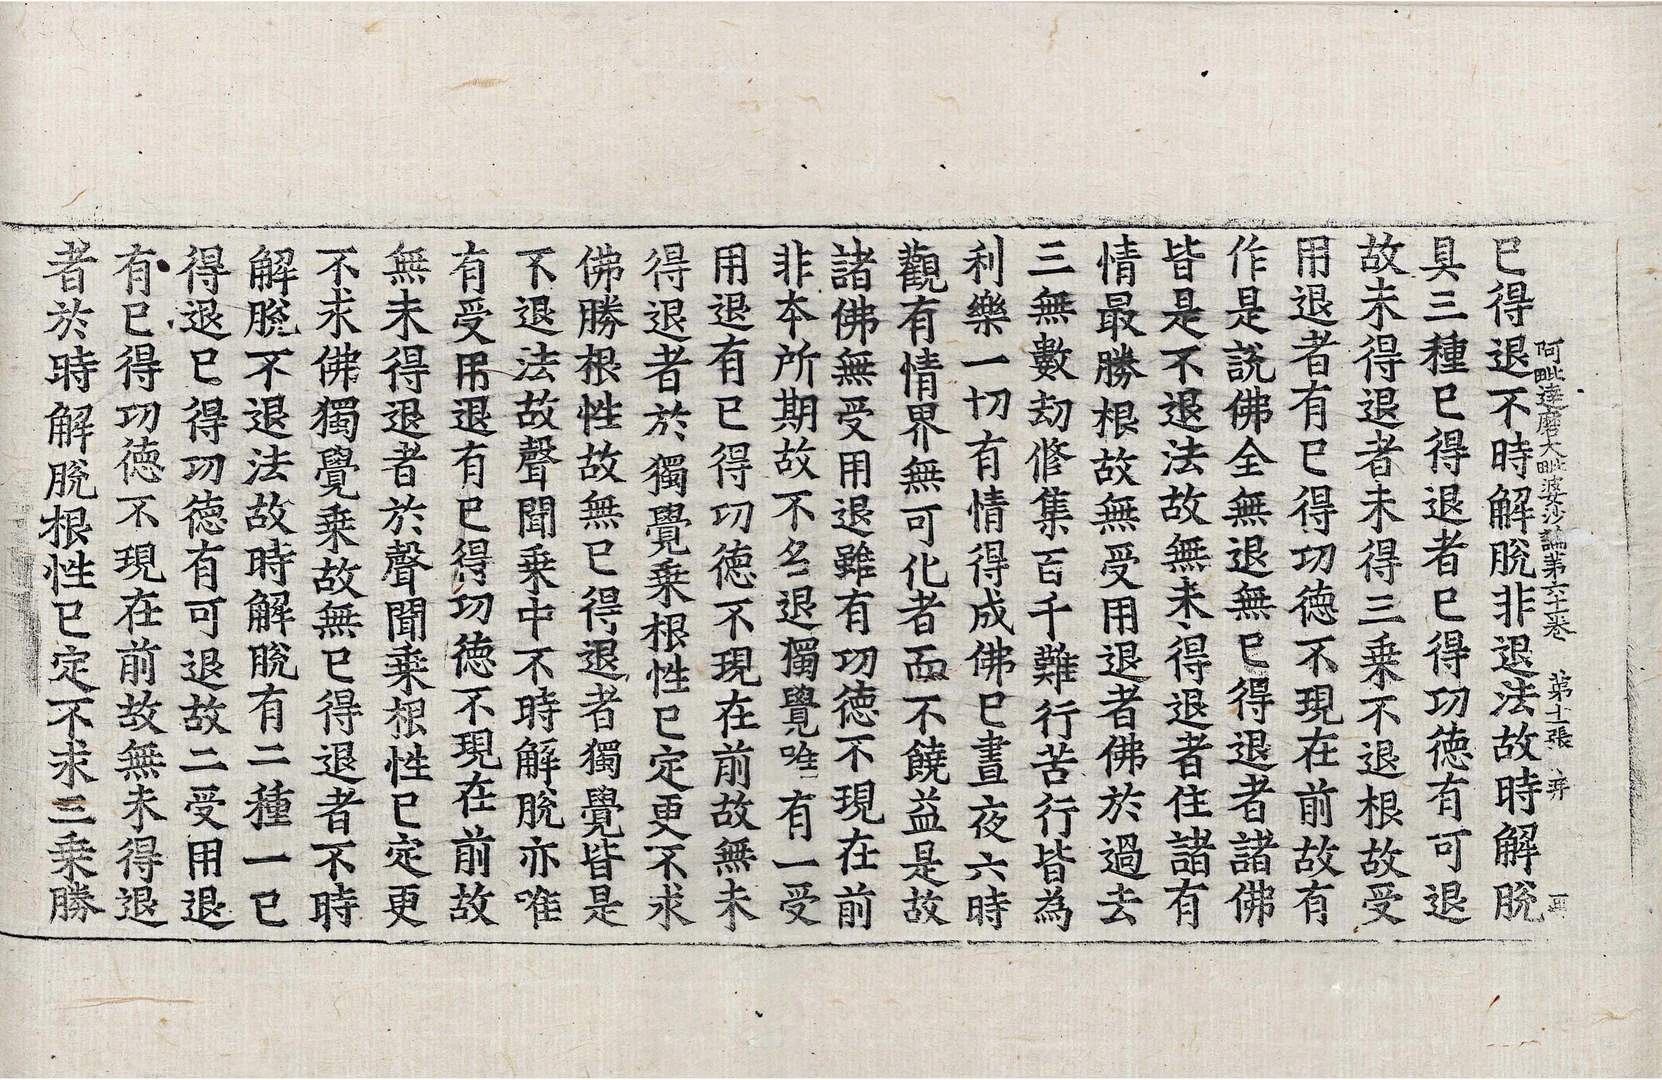 阿毗達磨大毗婆沙論第六十一卷　第十張　弁
已得退不時解脫非退法故時解脫
具三種已得退者已得功德有可退
故未得退者未得三乗不退根故受
用退者有已得功德不現在前故有
作是說佛全無退無已得退者諸佛
皆是不退法故無未得退者住諸有
情最勝根故無受用退者佛於過去
三無數劫修集百千難行苦行皆為
利樂一切有情得成佛已晝夜六時
觀有情界無可化者而不饒益是故
諸佛無受用退雖有功德不現在前
非本所期故不名退獨覺唯有一受
用退有已得功德不現在前故無未
得退者於獨覺乗根性已定更不求
佛勝根性故無已得退者獨覺皆是
不退法故聲聞乗中不時解脫亦唯
有受用退有已得功德不現在前故
無未得退者於聲聞乗根性已定更
不求佛獨覺乗故無已得退者不時
解脫不退法故時解脫有二種一已
得退已得功德有可退故二受用退
有已得功德不現在前故無未得退
者於時解脫根性已定不求三乗勝